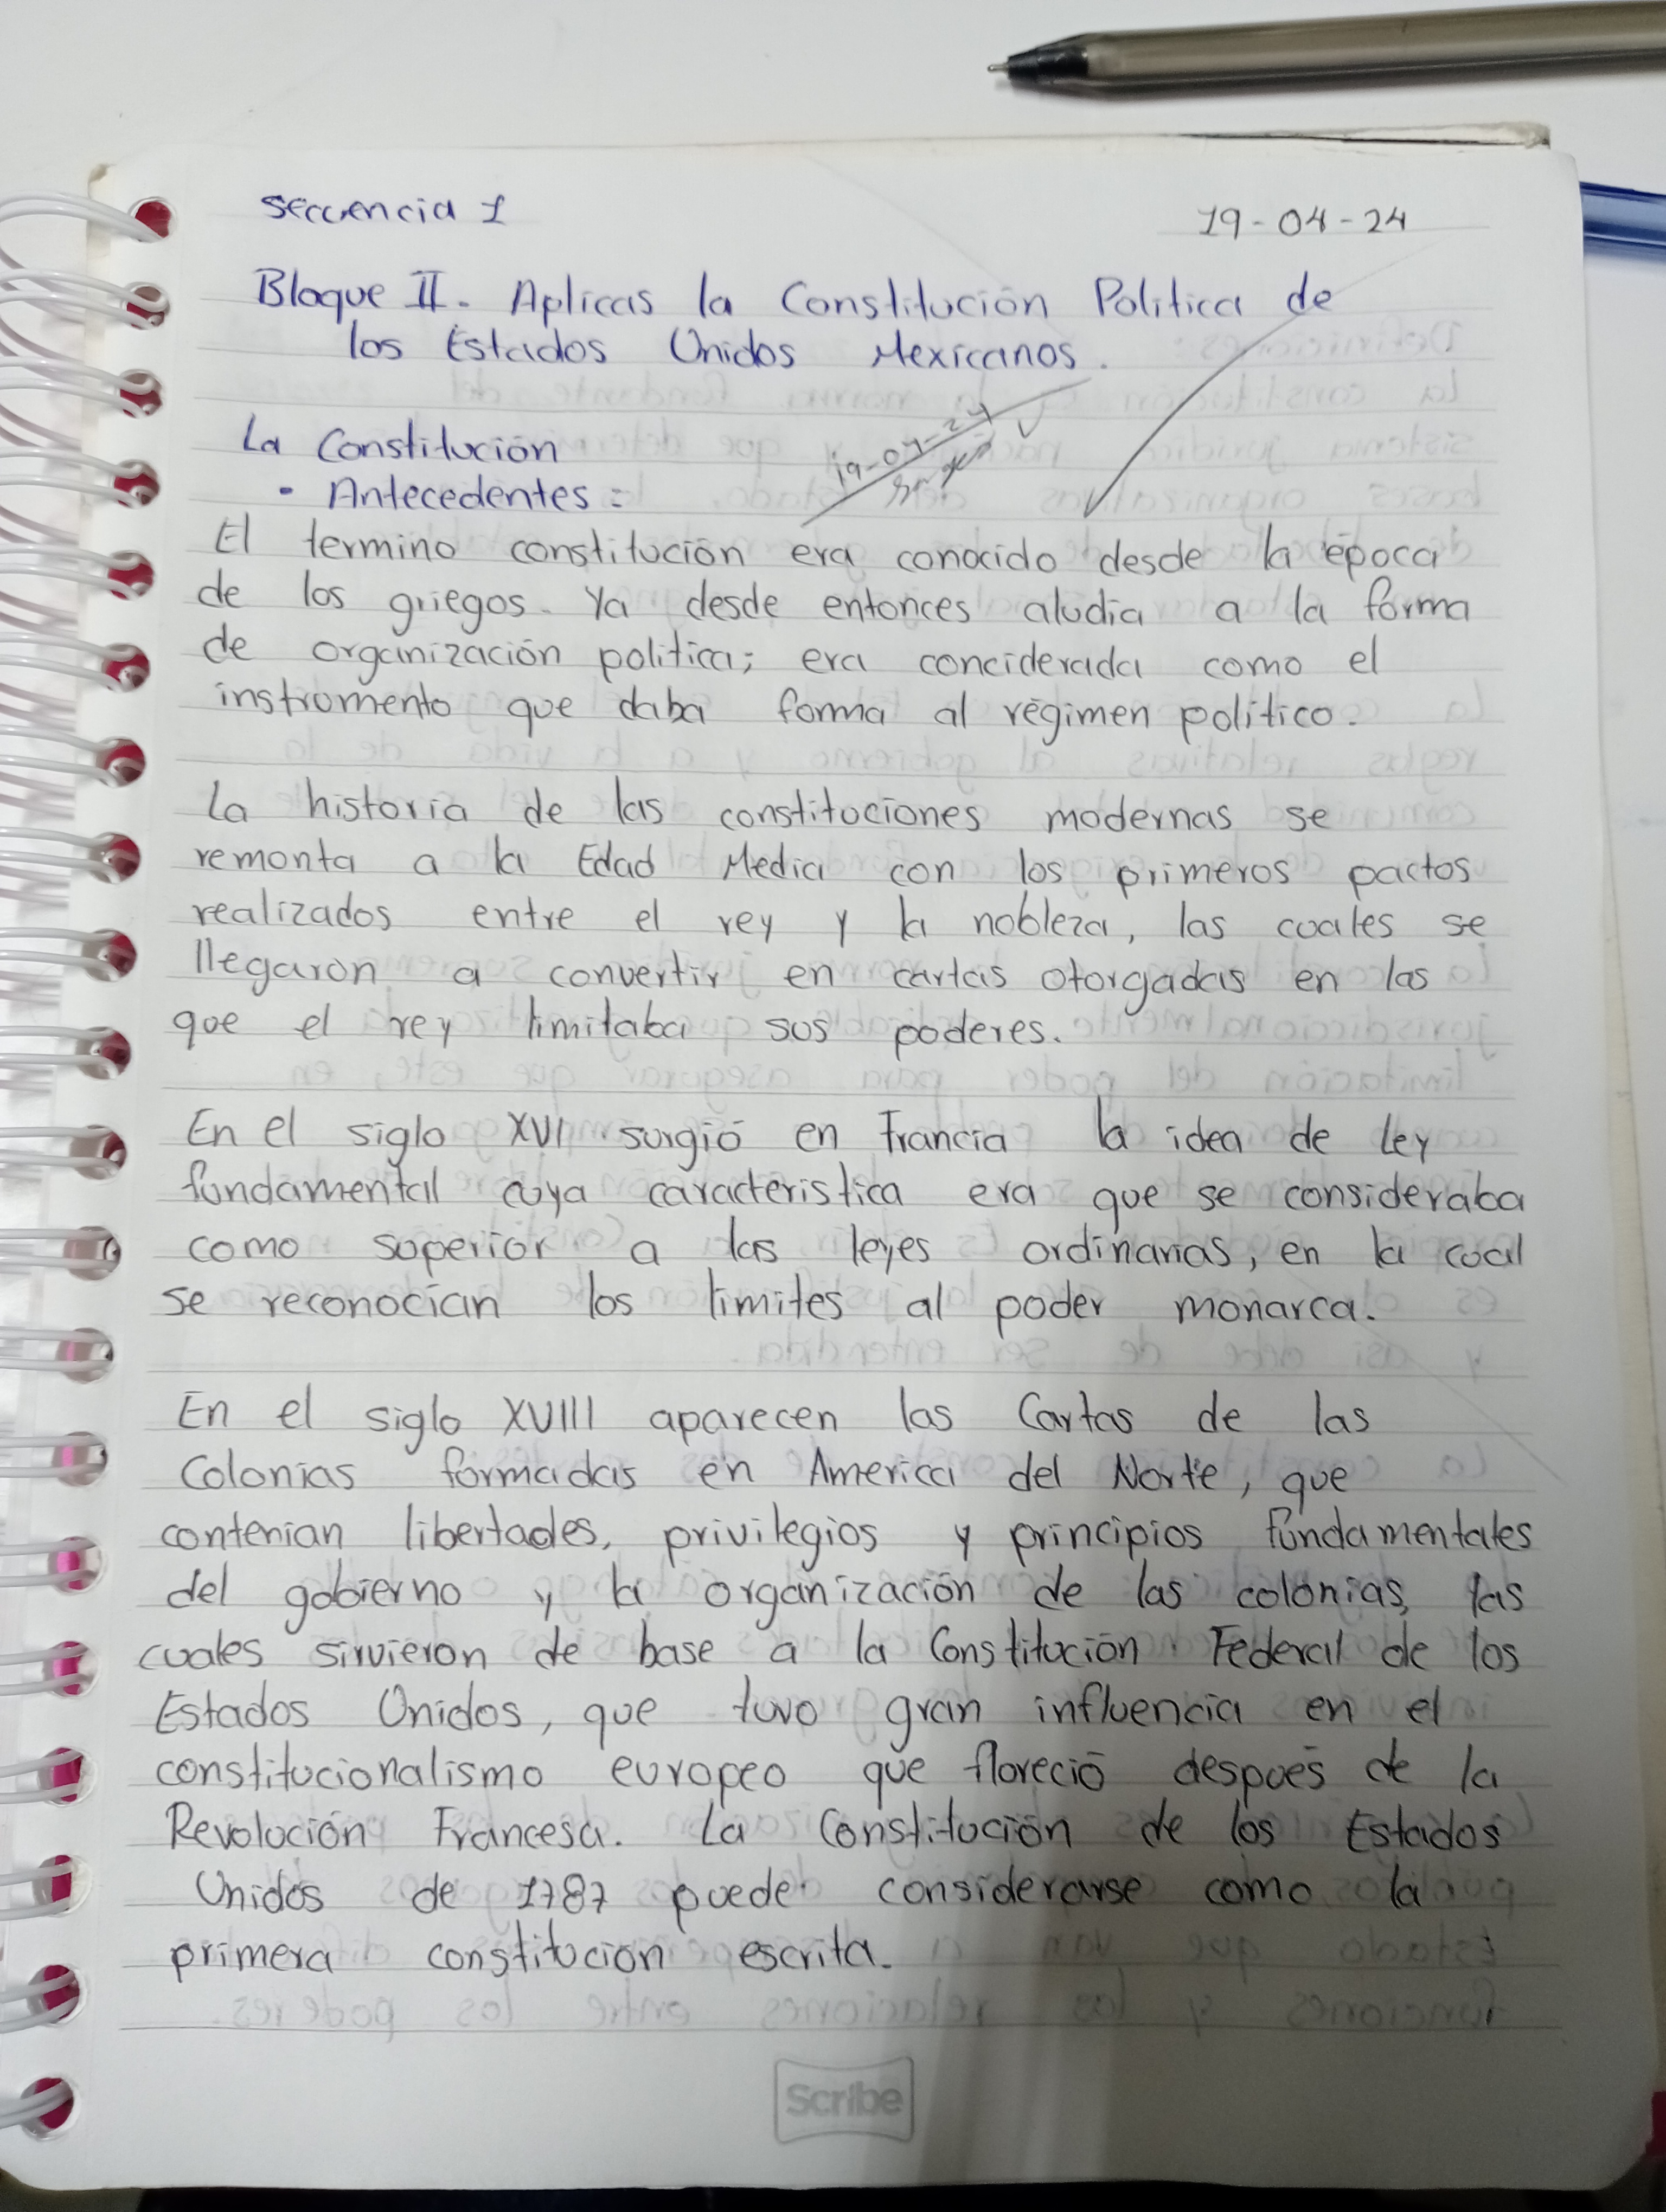 secuencia 1
19-04-24
Bloque II. Aplicas la Constitución Politica de
los Estados Unidos Mexicanos.
La Constitución
19-04-24
• Antecedentes:
El termino constitución era conocido desde la época
de los griegos. Ya desde entonces aludia a la forma
de organización politica; era conciderada como el
instrumento que daba forma al régimen político.
La historia de las constituciones modernas se
remonta a la Edad Media con los primeros pactos
realizados entre el rey y la nobleza, las cuales se
llegaron a convertir en cartas otorgadas en las
que el rey limitaba sus poderes.
En el siglo XVI surgió en Francia la idea de Ley
fundamental cuya caracteristica era que se consideraba
como superior a las leyes ordinarias, en la cual
se reconocían los limites al poder monarca.
En el siglo XVIII aparecen las Cartas de las
Colonias formadas en America del Norte, que
contenian libertades, privilegios y principios fundamentales
del gobierno y la organización de las colonias, las
cuales sirvieron de base a la Constitución Federal de los
Estados Unidos, que tuvo gran influencia en el
constitucionalismo europeo que floreció después de la
Revolución Francesa. La Constitución de los Estados
Unidos de 1787 puede considerarse como la
primera constitucion escrita.
Scribe